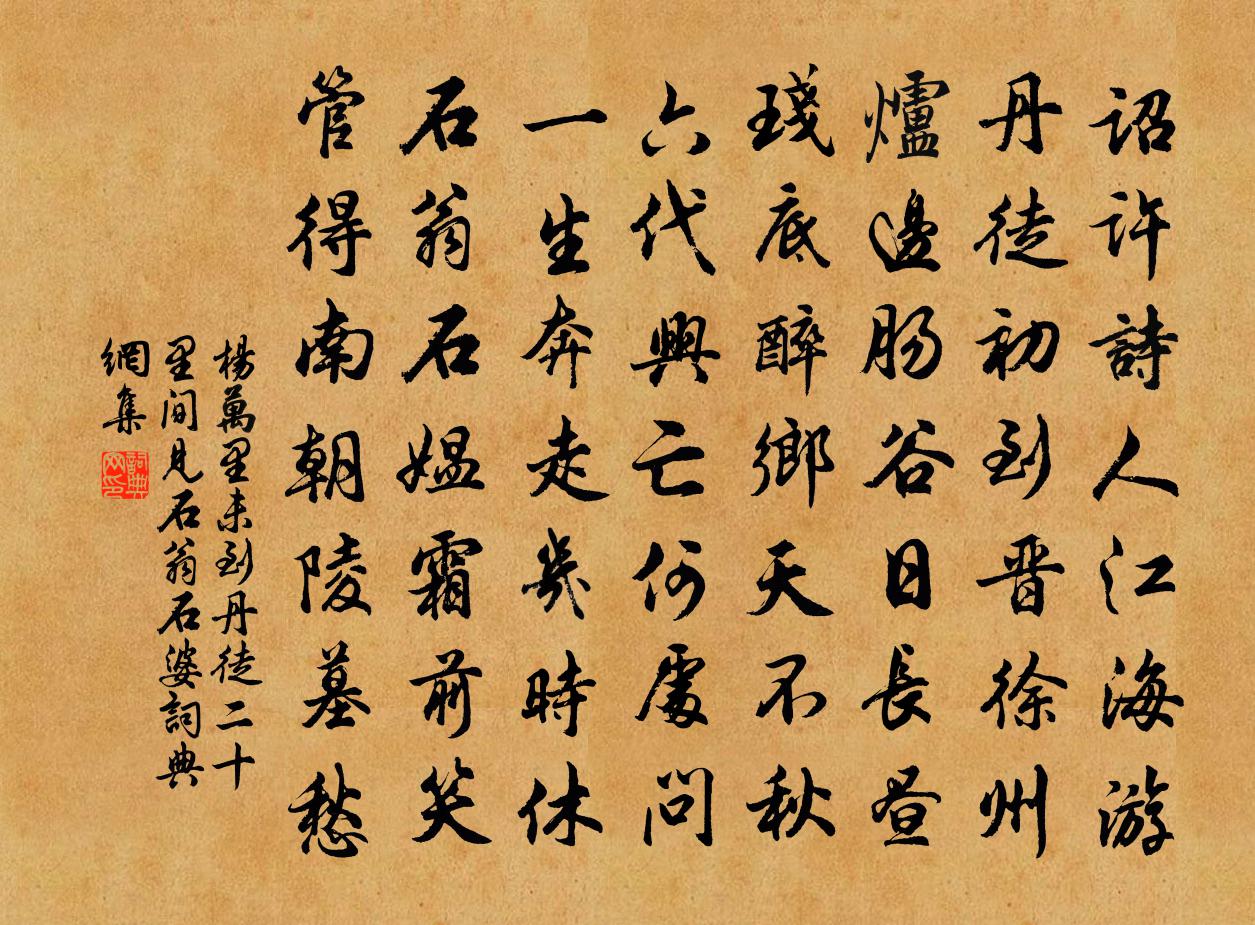 詔許詩人江海游
丹徒初到晋徐州
爐邊肠谷日長昼
琖底醉鄉天不秋
六代興亡何處問
一生奔走幾時休
石翁石媼霜前笑
管得南朝陵墓愁
楊萬里未到丹徒二十
里間見石翁石婆詞典
網集
詞典網印